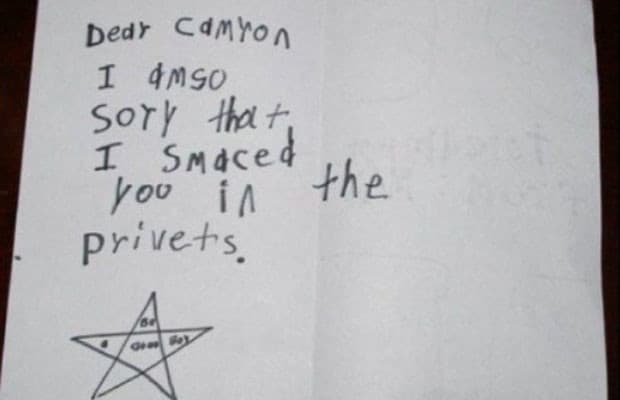 Dear Camron
I amso
sory that
I smaced
you in the
privets.
Be
a